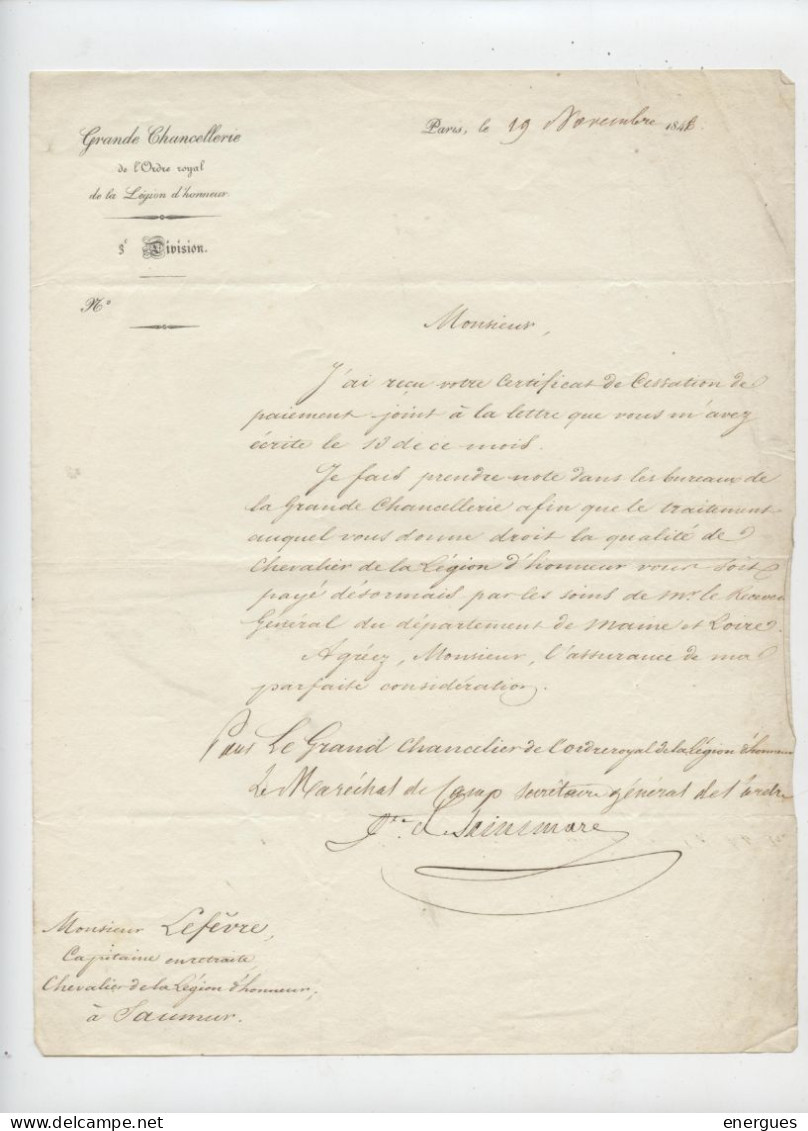 Grande Chancellerie
de l'Ordre royal
de la Légion d'honneur.
3e Division.
N°
Paris, le 19 Novembre 184
Monsieur,
J'ai reçu votre Certificat de Cessation de
paiement joint à la lettre que vous m'avez
écrite le 13 de ce mois.
Je fais prendre note dans les bureaux de
la Grande Chancellerie afin que le traitement
auquel vous donne droit la qualité de
Chevalier de la Légion d'honneur vous soit
payé désormais par les soins de Mr. le Receveur
Général du département de Maine et Loire.
Agréez, Monsieur, l'assurance de ma
parfaite considération.
Pour Le Grand Chancelier de l'ordre royal de la Légion d'honneur
Le Maréchal de Camp secrétaire général de l'ordre
Vte de Saint Mars
Monsieur Lefèvre,
Capitaine en retraite,
Chevalier de la Légion d'honneur,
à Saumur.
energues